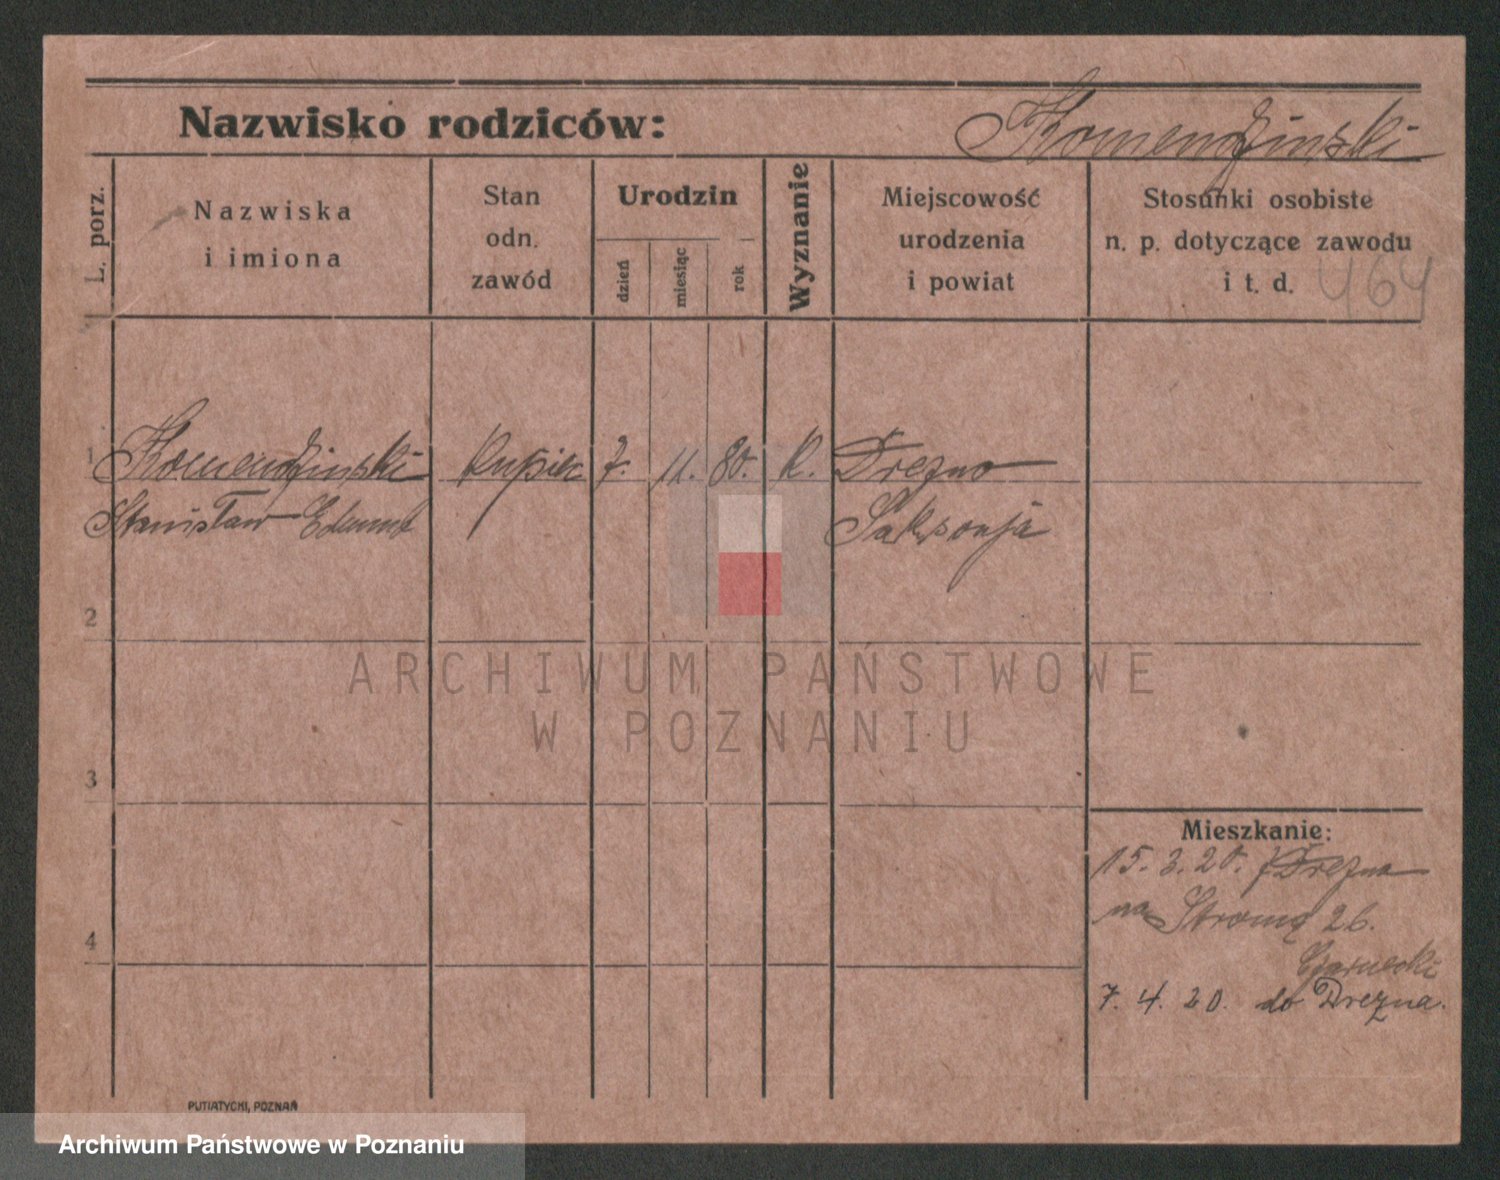 Nazwisko rodziców: Komendziński
L. porz.
Nazwiska
i imiona
Stan
odn.
zawód
Urodzin
dzień
miesiąc
rok
Wyznanie
Miejscowość
urodzenia
i powiat
Stosunki osobiste
n. p. dotyczące zawodu
i t. d. 464
1 Komendzinski Kupiec 7. 11. 80. K. Drezno
Stanisław Edmund Saksonja
2
3
4
Mieszkanie:
15. 3. 20. z Drezna
na Stromą 26.
Czarnecki
7. 4. 20. do Drezna.
PUTIATYCKI, POZNAŃ
ARCHIWUM PAŃSTWOWE
W POZNANIU
Archiwum Państwowe w Poznaniu